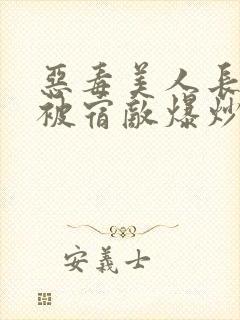 惡毒美人長
被宿敵爆炒
安義士